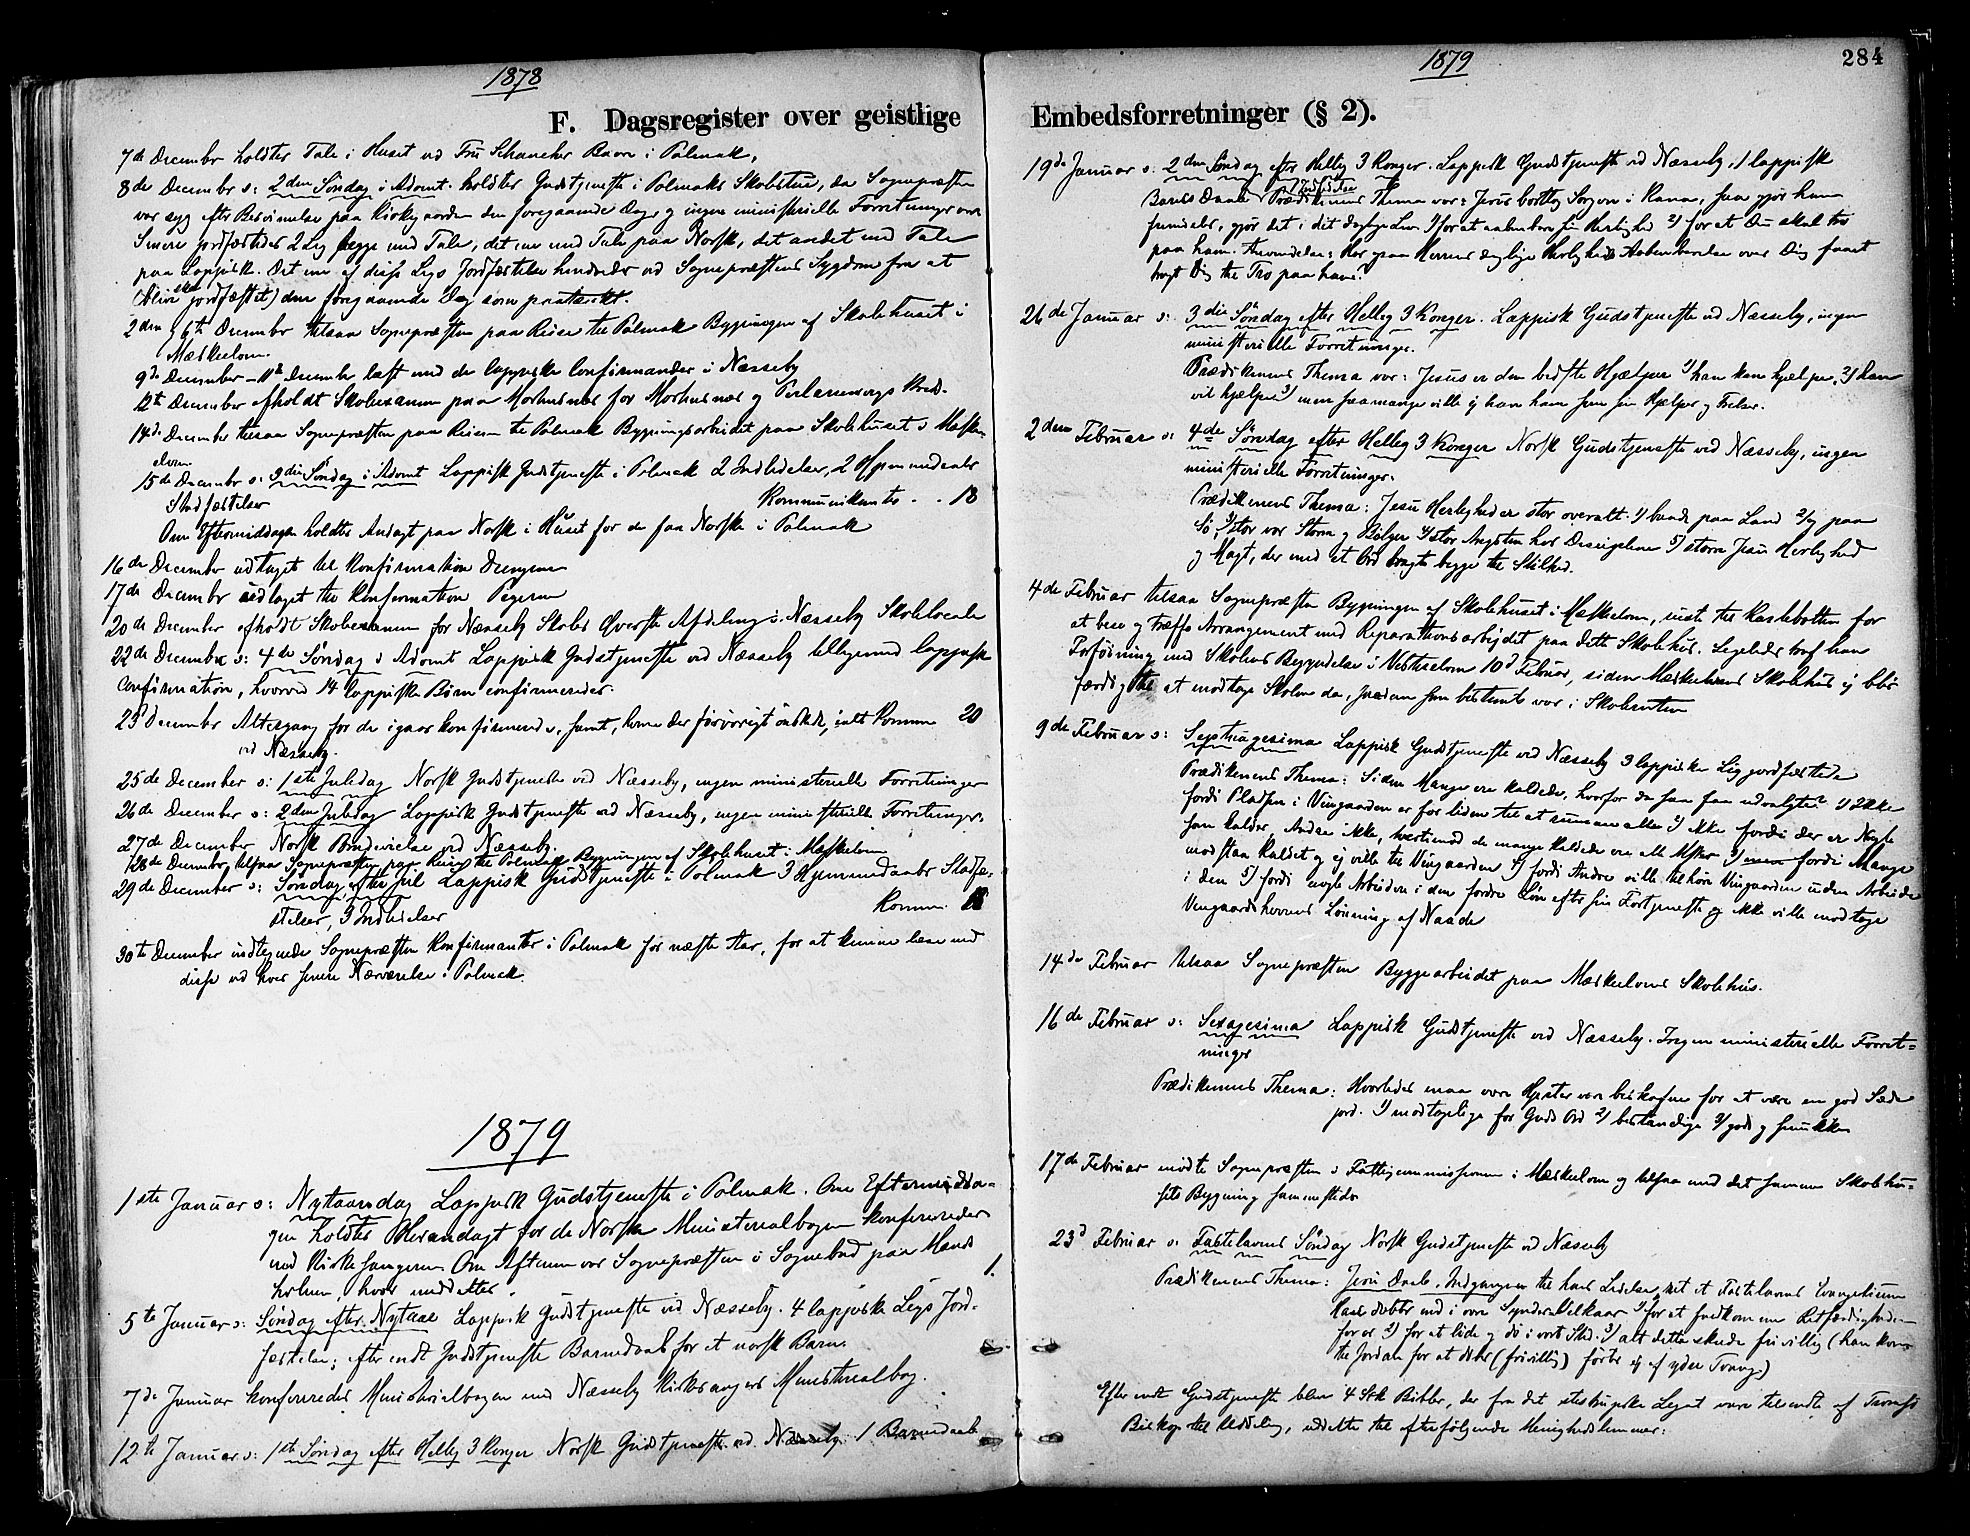 1878
F. Dagsregister over geistlige
7de December holdtes Tale i Huset ved Fru Schanches Baare i Polmak.
8de December s: 2den Søndag i Advent holdtes Gudstjeneste i Polmaks Skolestue, da Sognepræsten
var syg efter Besvimelse paa Kirkegaarden den foregaaende Dag og ingen ministerielle Forretninger
Senere jordfæstedes 2 Lig begge med Tale, det ene med Tale paa Norsk, det andet med Tale
paa Lappisk. Det ene af disse Ligs Jordfæstelse hindredes ved Sognepræstens Sygdom fra at
(blive jordfæstet) den foregaaende Dag som paatænkt.
2den og 6te December tilsaa Sognepræsten paa Reisen til Polmak Bygningen af Skolehuset i
Mæskelven.
9de December – 11te December læst med de lappiske Confirmander i Næsseby
12te December afholdt Skoleexamen paa Mortensnæs for Mortensnæs og
14de December tilsaa Sognepræsten paa Reisen til Polmak Bygningsarbeidet paa Skolehuset i Mæsk-
elven
15de December s: 3die Søndag i Advent Lappisk Gudstjeneste i Polmak 2 Indledelser, 2 Hjemmedaabs
Stadfæstelser Kommunikanter . . 18
Om Eftermiddagen holdtes Andagt paa Norsk i Huset for de faa Norske i Polmak
16de December udtaget til Konfirmation Drengene
17de December udtaget til Konfirmation Pigerne
20de December afholdt Skoleexamen for Næsseby Skoles øverste Afdeling i Næsseby Skolelocale
22de December s: 4de Søndag i Advent Lappisk Gudstjeneste ved Næsseby tilligemed lappisk
Confirmation, hvorved 14 lappiske Børn confirmeredes.
23d December Altergang for de igaar konfirmerede, samt, hvem der forøvrigt ønskede, ialt Komm 20
ved Næsseby.
25de December s: 1ste Juledag Norsk Gudstjeneste ved Næsseby, ingen ministerielle Forretninger
26de December s: 2den Juledag Lappisk Gudstjeneste ved Næsseby, ingen ministerielle Forretninger.
27de December Norsk Brudevielse ved Næsseby.
28de December tilsaa Sognepræsten paa Reisen til Polmak Bygningen af Skolehuset i Mæskelven
29de December s: Søndag efter Jul Lappisk Gudstjeneste i Polmak 3 Hjemmedaabs Stadfæ-
stelser, 3 Indledelser Komm.
30te December indtegnede Sognepræsten Konfirmanter i Polmak for næste Aar, for at kunne læse med
disse ved hver senere Nærværelse i Polmak.
1879
1ste Januar s: Nytaarsdag Lappisk Gudstjeneste i Polmak. Om Eftermidda-
gen holdtes Andagt for de Norske Ministerialbogen konfereredes
med Kirkesangeren. Om Aftenen var Sognepræsten i Sognebud paa Mands
holmen, hvor meddeltes 1.
5te Januar s: Søndag efter Nytaar Lappisk Gudstjeneste ved Næsseby. 4 lappiske Ligs Jord-
fæstelse; efter endt Gudstjeneste Barnedaab for et norsk Barn.
7de Januar konfereredes Ministerialbogen med Næsseby Kirkesangers Ministerialbog.
12te Januar s: 1ste Søndag efter Hellig 3 Konger Norsk Gudstjeneste ved Næsseby. 1 Barnedaab
1879
284
Embedsforretninger (§ 2).
19de Januar s: 2den Søndag efter Hellig 3 Konger. Lappisk Gudstjeneste ved Næsseby. 1 lappisk
Barns Daab 1 Indledelse Prædikenens Thema var: Jesus borttog Sorgen i Kana, saa gjør han
fremdeles, gjør det i det daglige Liv 1) for at aabenbare sin Herlighed 2) for at Du skal tro
paa ham. Anvendelse: Har Herrens daglige Herligheds Aabenbarelse over Dig faaet
bragt Dig til Tro paa ham?
26de Januar s: 3die Søndag efter Hellig 3 Konger. Lappisk Gudstjeneste ved Næsseby, ingen
ministerielle Forretninger.
Prædikenens Thema var: Jesus er den bedste Hjælper 1) han kan hjælpe, 2) han
vil hjælpe 3) men saamange ville ej have ham som sin Hjælper og Frelser.
2den Februar s: 4de Søndag efter Hellig 3 Konger Norsk Gudstjeneste ved Næsseby, ingen
ministerielle Forretninger.
Prædikenens Thema: Jesu Herlighed er stor overalt. 1) baade paa Land 2) og paa
Sø. 3) stor var Storm og Bølger 4) stor Angsten hos Disciplene 5) større Jesu Herlighed
og Magt, der med et Ord bragte begge til Stilhed.
4de Februar tilsaa Sognepræsten Bygningen af Skolehuset i Mæskelven, reiste til Karlebotten for
at bese og træffe Arrangement med Reparationsarbejdet paa dette Skolehus. Ligeledes traf han
Forføining med Skolens Begyndelse i Vesterelven 10d Februar, siden Mæskelvens Skolehus ej blir
færdigt til at modtage Skolen da, saadan som bestemt var i Skoleruten
9de Februar s: Septuagesima Lappisk Gudstjeneste ved Næsseby 3 lappiske Lig jordfæstede
Prædikenens Thema: Siden Mange ere kaldede, hvorfor da saa faa udvalgte? 1) Ikke
fordi Pladsen i Vingaarden er for liden til at rumme alle 2) ikke fordi der er Nogle
han kalder, Andre ikke, tvertimod de mange kaldede ere alle 3) men fordi Mange
modstaa Kaldet og ej ville til Vingaarden 4) fordi Andre ville tilhøre Vingaarden uden Arbeide
i den 5) fordi nogle Arbeidere i den fordre Løn efter sin Fortjeneste og ikke ville modtage
Vingaardsherrens Lønning af Naade
14de Februar tilsaa Sognepræsten Byggearbeidet paa Mæskelvens Skolehus.
16de Februar s: Sexagesima Lappisk Gudstjeneste ved Næsseby. Ingen ministerielle Forret-
ninger
Prædikenens Thema: Hvorledes maa vore Hjerter være beskafne for at være en god Sæde
jord. 1) modtagelige for Guds Ord 2) bestandige 3) gode og smukke
17de Februar mødte Sognepræsten i Fattigcommissionen i Mæskelven og tilsaa med det samme Skolehu-
sets Bygning sammesteds
23d Februar s: Fastelavns Søndag Norsk Gudstjeneste ved Næsseby
Prædikenens Thema: Jesu Daab. Indgangen til hans Lidelse, ret et Fastelavns Evangelium
Han døbtes ind i vore Synders Vilkaar 1) for at fuldkomme Retfærdigheden
for os 2) for at lide og dø i vort Sted. 3) alt dette skede frivillig (han kom
til Jordan for at døbes (frivillig) førtes ej af ydre Tvang.)
Efter endt Gudstjeneste bleve 4 Stk Bibler, der fra det Legat vare tilsendte af Tromsø
Biskop til Uddeling, uddelte til efterfølgende Menighedslemmer: